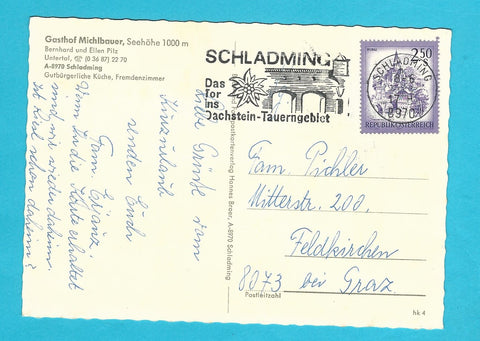 Gasthof Michlbauer, Seehöhe 1000 m
Bernhard und Ellen Pilz
Untertal, ☏ (0 36 87) 22 70
A-8970 Schladming
Gutbürgerliche Küche, Fremdenzimmer
SCHLADMING
Das
Tor
ins
Dachstein-Tauerngebiet
SCHLADMING
8970
2.50
REPUBLIK ÖSTERREICH
Liebe Grüße vom
Kurzurlaub
senden Euch
Fam.
Wenn Ihr die Karte erhaltet
sind wir wieder daheim.
Ist Rosi schon daheim?
Postkartenverlag Hannes Breer, A-8970 Schladming
Fam. Pichler
Mitterstr. 200.
Feldkirchen
8073 bei Graz
Postleitzahl
hk 4